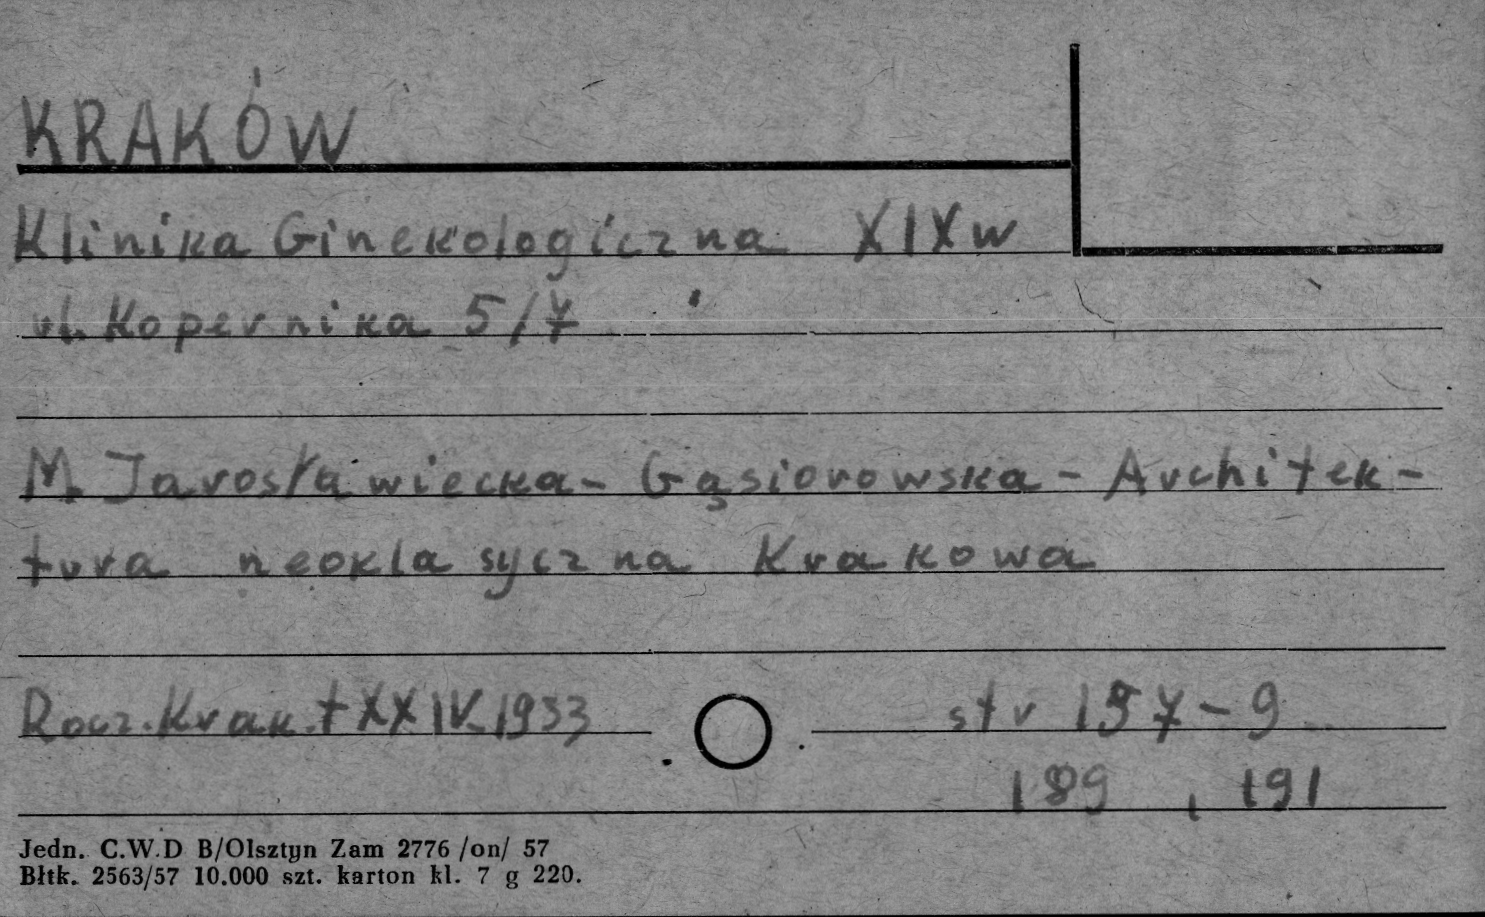 KRAKÓW
Klinika Ginekologiczna XIX w
ul. Kopernika 5/7
M. Jarosławiecka- Gąsiorowska - Architek-
tura neoklasyczna Krakowa
Rocz. Krak. t XXIV. 1933
str 157-9
189, 191
Jedn. C.W.D B/Olsztyn Zam 2776 /on/ 57
Błtk. 2563/57 10.000 szt. karton kl. 7 g 220.